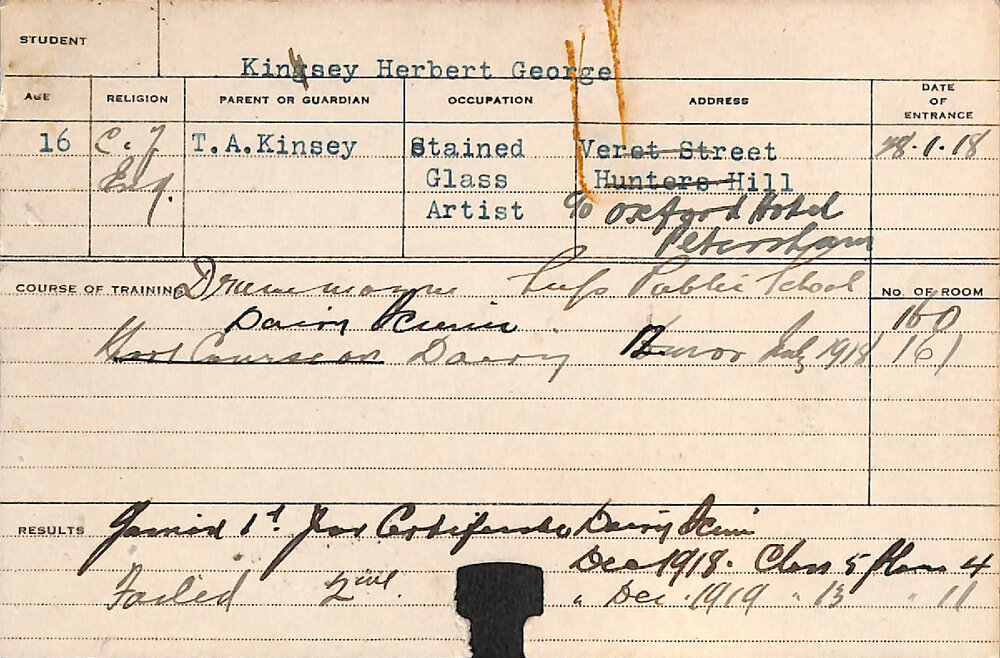 STUDENT
Kinsey Herbert George
AGE RELIGION PARENT OR GUARDIAN OCCUPATION ADDRESS DATE OF ENTRANCE
16 C. of T.A.Kinsey Stained Veret Street 28.1.18
Eng. Glass Hunters Hill
Artist c/o Oxford Hotel
Petersham
COURSE OF TRAINING Drummoyne Public School No. OF ROOM
Dairy Science 160
Course on Dairy July 1918 161
RESULTS Gained 1st Year Certificate Dairy Science
Dec 1918. Class 5 Place 4
Failed 2nd. " Dec. 1919 " 13 " 11